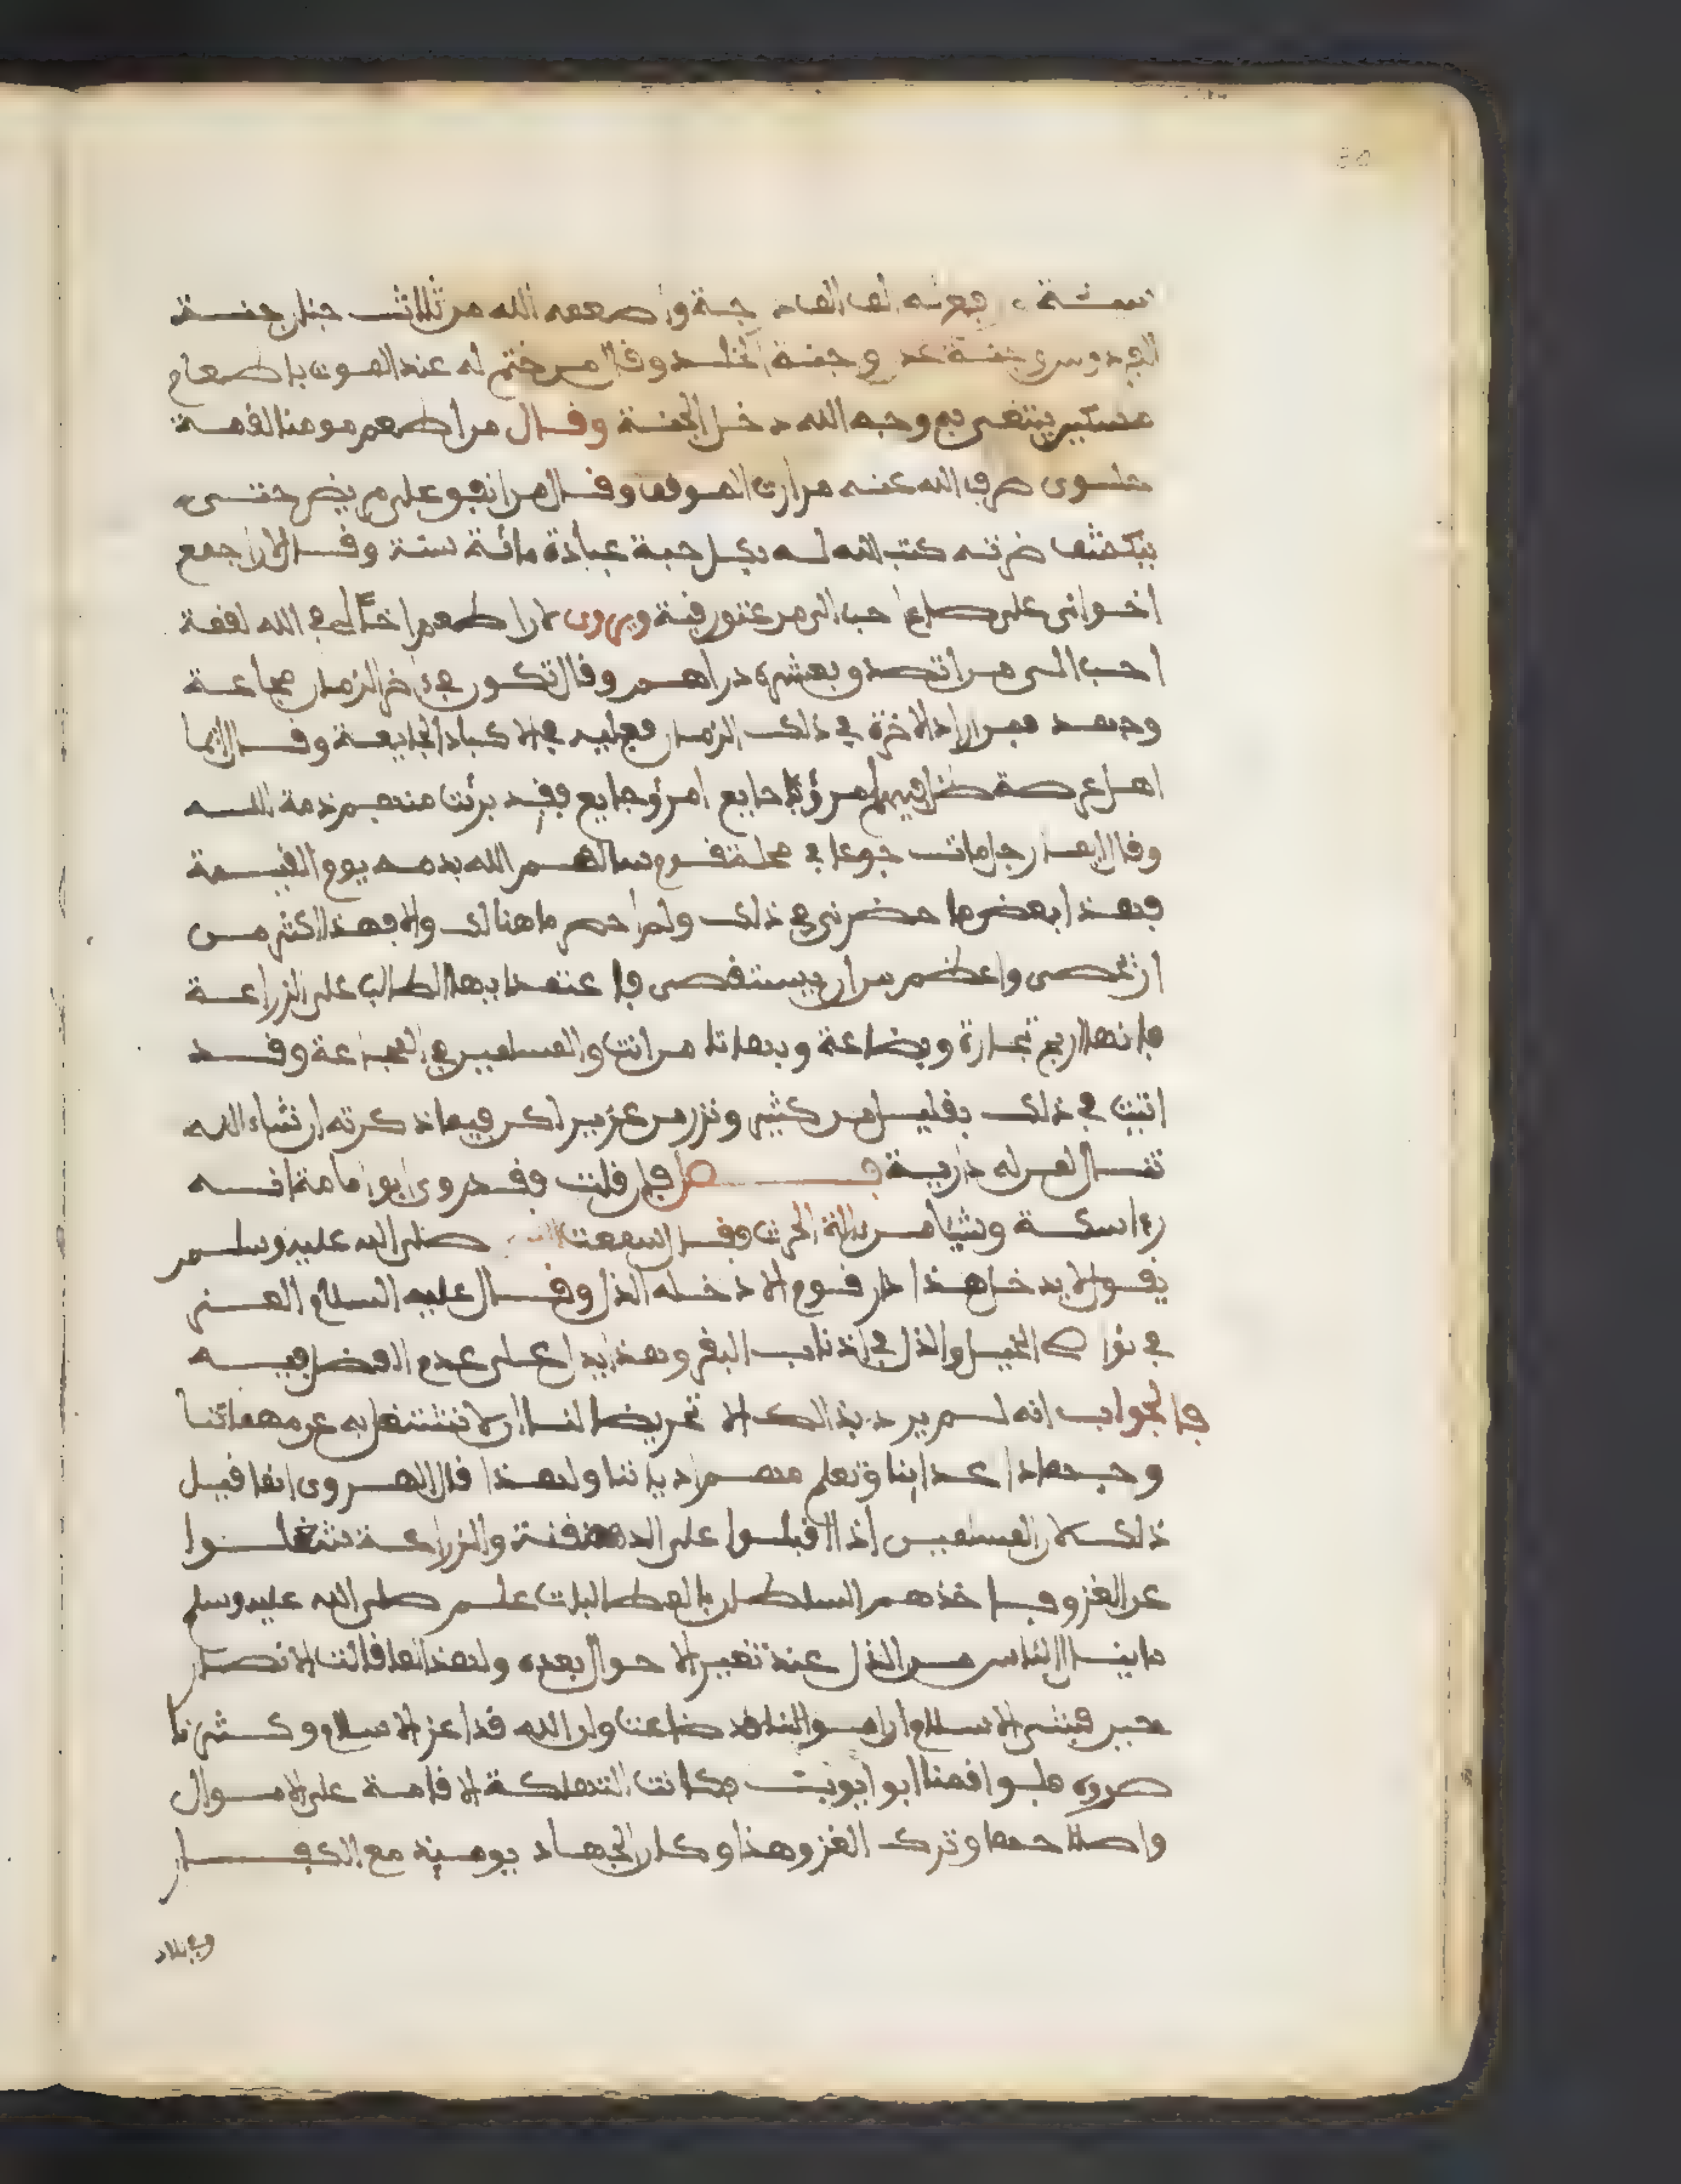 سنة ورفع له الف الف درجة واطعمه الله من ثلاث جنان جنة
الفردوس وجنة عدن وجنة الخلد وقال من ختم له عند الموت باطعام
مسكين يبتغى به وجه الله دخل الجنة وقال من اطعم مومنا لقمة
حلوى صرف الله عنه مرارت الموقف وقال من انفق على مريض حتى
يكشف ضرته كتب الله له بكل حبة عبادة مائة سنة وقال لان اجمع
اخوانى على صاع احب الى من عتق رقبة ويروى لان اطعم اخا لى فى الله لقمة
احب الى من اتصدق بعشرة دراهم وقال تكون فى ءاخر الزمان مجاعة
وجهد فمن اراد الاخرة فى ذلك الزمان فعليه فى الاكباد الجايعة وقال ايما
اهل عرصة ظل فيهم امرؤ جايع فقد برئت منهم ذمة الله
وقال ايما رجل مات جوعا فى محلة قوم سالهم الله بدمه يوم القيمة
فهذا بعض ما حضرنى فى ذلك ولم احصر ما هنالك والا فهذا اكثر من
ان تحصى واعظم من ان يستقصى فاعتمد ايها الطالب على الزراعة
فانها اربح تجارة وبضاعة وبها تامن انت والمسلمين فى المجاعة وقد
اتيت فى ذلك بقليل من كثير ونزر من غزير لكن فيما ذكرته ان شاء الله
تعالى لمن له دارية فصل فان قلت فقد روى ابو امامة انه
رءا سكة وشيا من ءالة الحرث فقال سمعت صلى الله عليه وسلم
يقول لا يدخل هذا دار قوم الا دخله الذل وقال عليه السلام العز
فى نواصى الخيل والذل فى اذناب البقر وهذا يدل على عدم الفضل فيه
فالجواب انه لم يرد بذالك الا تحريضا لنا ان لا نشتغل به عن مهماتنا
وجهاد اعداينا وتعلم مهم اديانا ولهذا قال الهروى انما قيل
ذلك لان المسلمين اذا اقبلوا على الدهقنة والزراعة شغلوا
عن الغزو فياخذهم السلطان بالمطالبات علم صلى الله عليه وسلم
ما ينال الناس من الذل عند تغير الاحوال بعده ولهذا لما قالت الانصار
حين فشى الاسلام ان اموالنا قد ضاعت وان الله قد اعز الاسلام وكثر نا
صروه فلو اقمنا ابو ايوب فكانت التهلكة الاقامة على الاموال
واصلاحها وترك الغزو هذا وكان الجهاد يوميذ مع الكفار
وفى بلاد